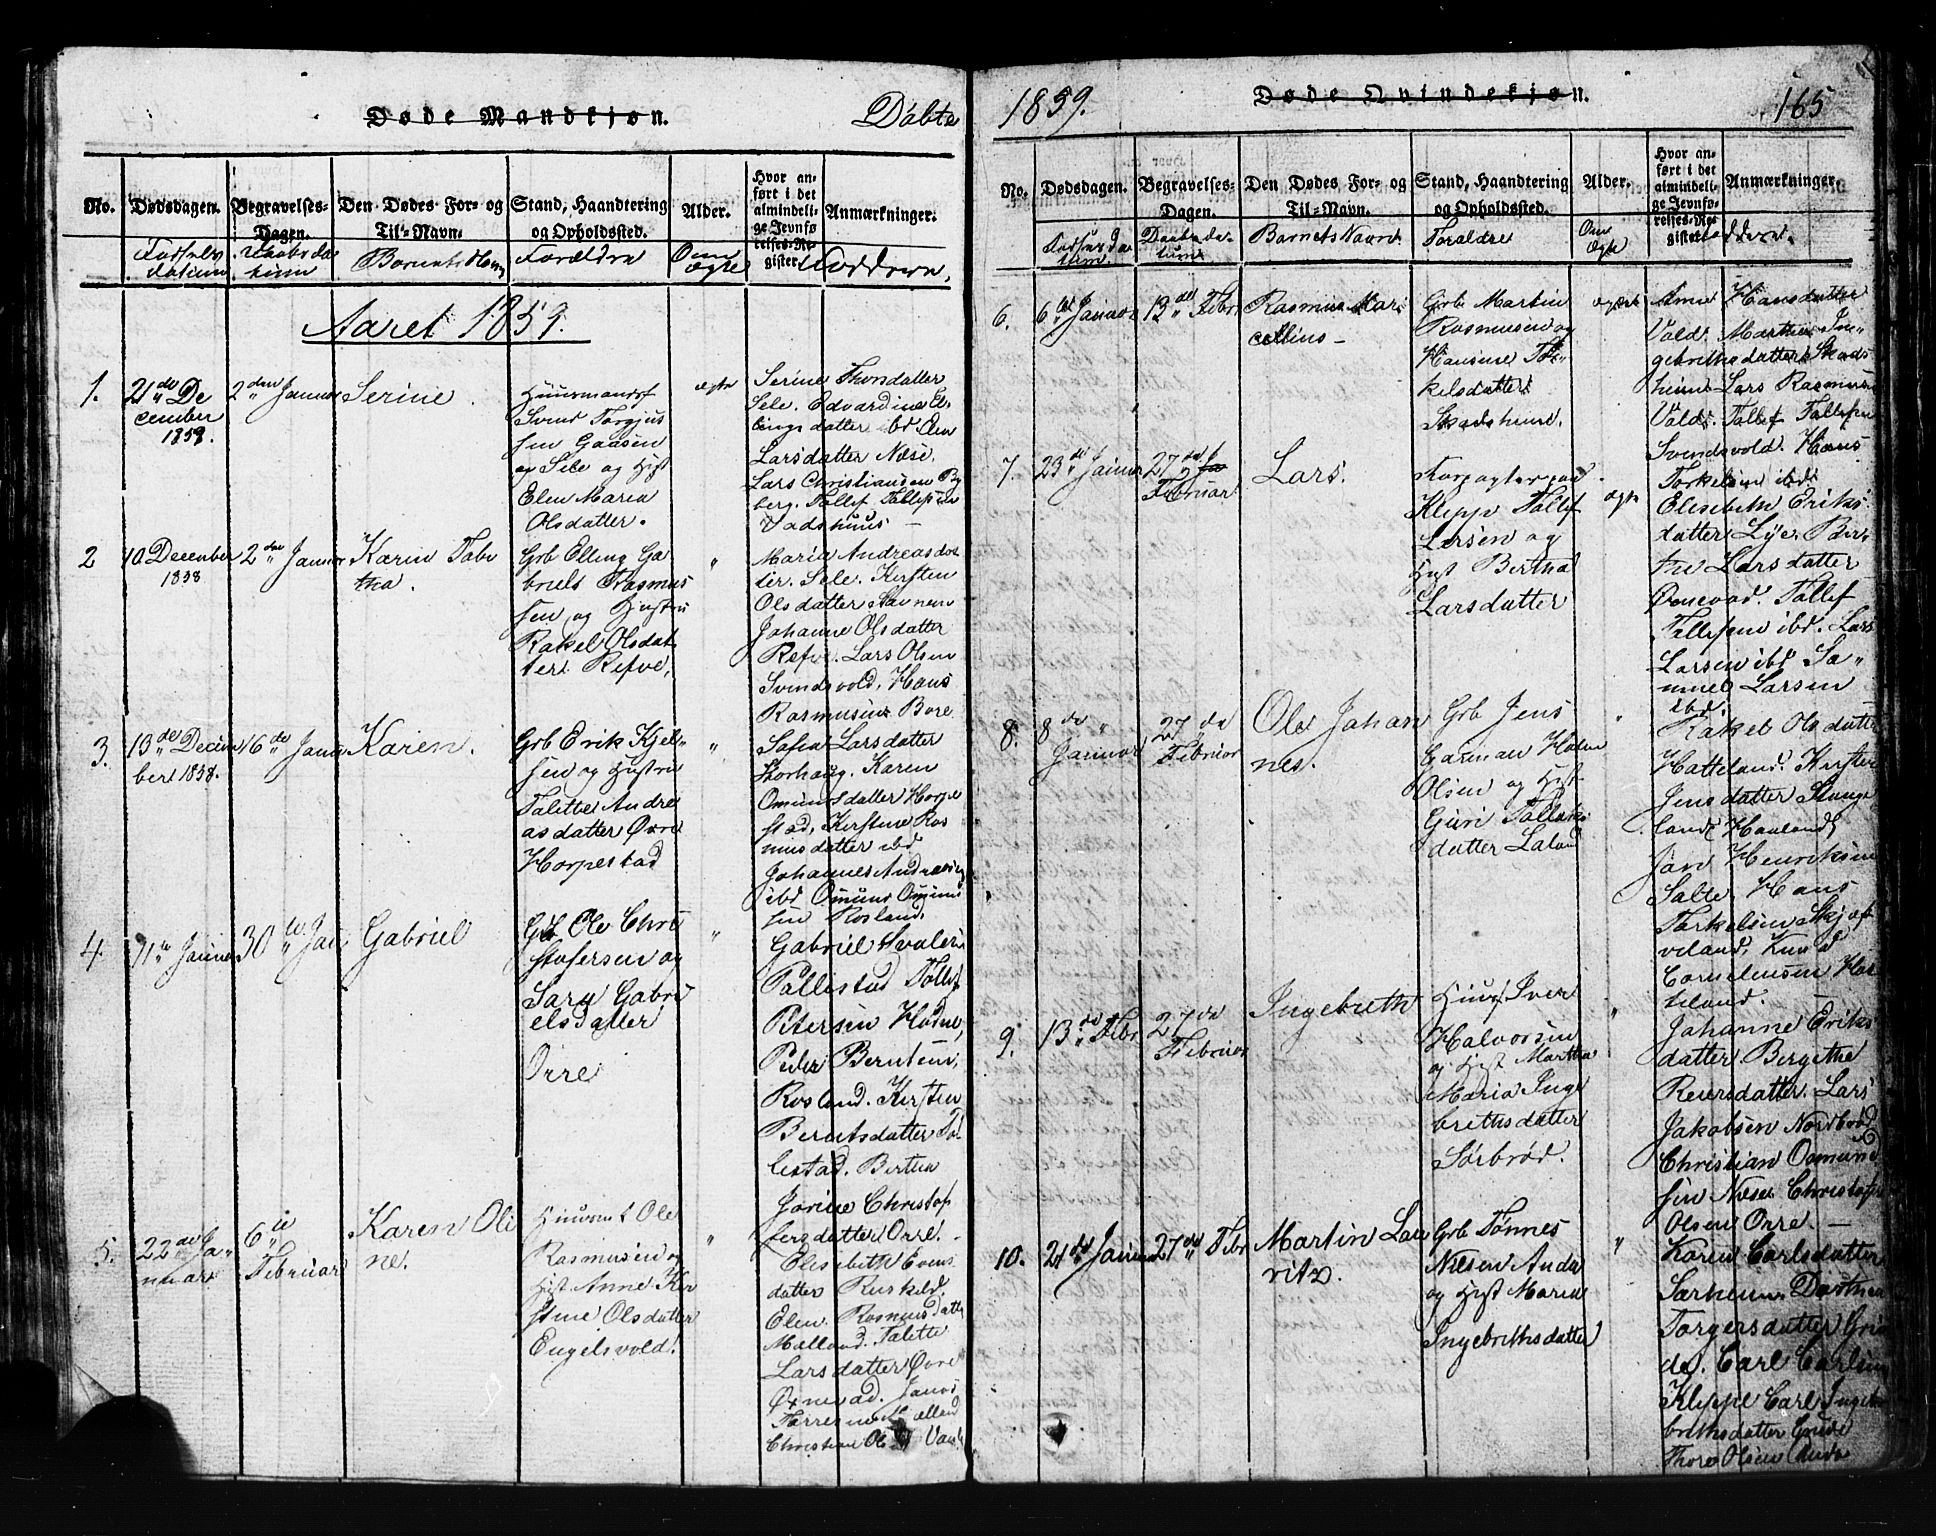 Døde Mandkjøn.
Døbte
No.
Dødsdagen.
Begravelses-
Dagen.
Den Dødes For- og
Til-Navn.
Stand, Haandtering
og Opholdssted.
Alder.
Hvor an-
ført i det
almindeli-
ge Jevnfø
relses-Re-
gister.
Anmærkninger.
Fødsels
datum
Daabsda
tum
Barnets Navn
Forældre
Om
ægte
Faddere,
Aaret 1859.
1.
21de De
cember
1859.
2den Januar
Serine.
Huusmand
Svend Torgjus
sen Gaasen
og Sele og Hust
Elen Maria
Olsdatter.
ægte
Serine
Sele. Edvardine El-
lingsdatter ibd
Larsdatter Næse.
Lars Christiansen
berg. Tollef Tollefsen
Vadshuus
2
10 December
1858
2den Januar
Karen Tabe
tha.
Grb Elling Ga
briels Rasmus
sen og Hustru
Rakel Olsdat
ter Refve,
"
Maria Andreasdat
ter. Sele. Kirsten
Olsdatter
Johanne Olsdatter
Refve. Lars Olsen
Svindsvold, Hans
Rasmusen Bore
3.
13de Decem
ber 1858.
16de Janu
Karen.
Grb Erik Kjel-
sen og Hustru
Talette Andre
asdatter Øvre
Horpestad
"
Larsdatter
Storhaug. Karen
Omundsdatter Horpe
stad, Kirstine Ras
musdatter ibd
Johannes Andreasen
ibd Omund Omund
sen Rosland.
4.
11te Januar
30te Jan
Gabriel
Grb Ole Chri
stofersen og
Sara Gabri
elsdatter
Orre
"
Gabriel
Pollestad Tollef
Petersen Hodne,
Peder Berntsen,
Rosland. Kirsten
Berntsdatter Pol
lestad. Bertha
Jorine Christof
fersdatter Orre.
5.
22de Ja-
nuar
6te
Februar
Karen Oli
ne.
Huusmt Ole
Rasmusen og
Hust Anne Kir
stine Olsdatter
Engelsvold.
"
Elesebeth Evens
datter
Elen Rasmusdatter
Malland. Talette
Larsdatter Øvre
Øxnevad.
Christian
1859.
Døde Qvindekjøn.
165
No.
Dødsdagen.
Begravelses-
Dagen.
Den Dødes For- og
Til-Navn.
Stand, Haandtering
og Opholdssted.
Alder.
Hvor an-
ført i det
almindeli-
ge Jevnfø-
relses-Re-
gister.
Anmærkninger.
Fødselsda
tum.
Daabsda-
tum
Barnets Navn.
Forældre
Om
Ægte
Faddere.
6.
6te Januar
13de Febr
Rasmus Mar
cellius
Grb Martin
Rasmusen og
Hansine Tor-
kelsdatter
Skadsheim.
ægte
Ane Hansdatter
Vold. Marthe In-
gebrethsdatter Skads
heim Lars Rasmusen
Vold. Tollef Tollefsen
Svendsvold. Hans
Torkelsen ibd
7.
23de Januar
27de Ja
Februar
Lars.
Forpagter paa
Klepp Tollef
Larsen og
Hust Bertha
Larsdatter
ægte
Elesebeth Eriks
datter Lye. Ber-
the Larsdatter
Øxnevad. Tollef
Tollefsen ibd. Lars
Larsen ibd Sa-
muel Larsen
ibd.
8.
8de
Januar
27de
Februar
Ole Johan
nes.
Grb Jens
Garman
Olsen og Hust
Guri Tollaks
datter Laland
"
Rakel Olsdatter
Hatteland. Kirsten
Jensdatter Stange
land, Haaland
Henriksen
Salte. Hans
Torkelsen Skjæf
veland, Knud
Corneliusen Hat
teland.
9.
13de Febr
27de
Februar
Ingebreth
Huusm Iver
Halvorsen
og Hust Martha
Maria Inge
brethsdatter
Sørbrød.
"
Johanne Eriks
datter. Bergethe
Reiersdatter. Lars
Jakobsen Nordbrød
Christian Osmund
sen Næse Christofer
Olsen Orre.
10.
21de Januar
27de Febr
Martin Lau
ritz.
Grb Tønnes
Nielsen Anda
og Hust Maria
Ingebrethsdatter
"
Karen Carlsdatter
Særheim. Dorthea
Torgersdatter Gru
de. Carl Carlsen
Kleppe Carl Inge
brethsdatter Grude
Thore Olsen Anda